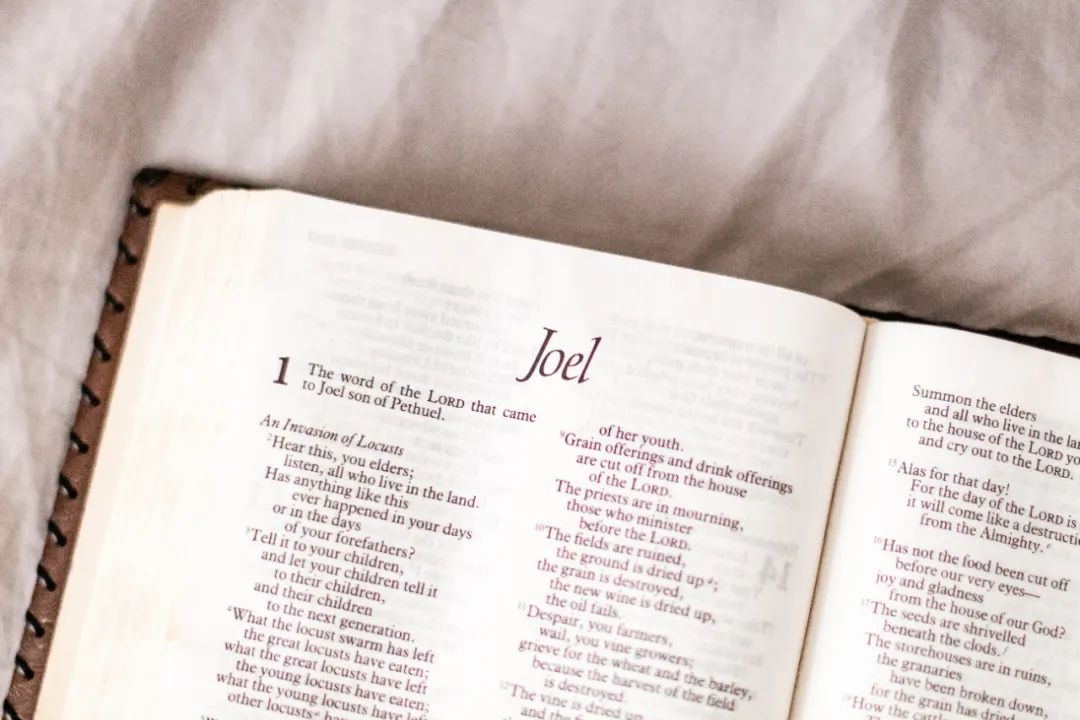 Joel
1 The word of the LORD that came
to Joel son of Pethuel.
An Invasion of Locusts
2Hear this, you elders;
listen, all who live in the land.
Has anything like this
ever happened in your days
or in the days
of your forefathers?
3Tell it to your children,
and let your children tell it
to their children,
and their children
to the next generation.
4What the locust swarm has left
the great locusts have eaten;
what the great locusts have left
the young locusts have eaten;
what the young locusts have left
other locusts
of her youth.
9Grain offerings and drink offerings
are cut off from the house
of the LORD.
The priests are in mourning,
those who minister
before the LORD.
10The fields are ruined,
the ground is dried up;
the grain is destroyed,
the new wine is dried up,
the oil fails.
11Despair, you farmers,
wail, you vine growers;
grieve for the wheat and the barley,
because the harvest of the field
is destroyed.
12The vine is dried up
and the
Summon the elders
and all who live in the
to the house of the LORD
and cry out to the LORD.
15Alas for that day!
For the day of the LORD is
it will come like a
from the Almighty.
16Has not the food been cut off
before our very eyes—
joy and gladness
from the house of our God?
17The seeds are shrivelled
beneath the clods.f
The storehouses are in ruins,
the granaries
have been broken down,
for the grain has
How the